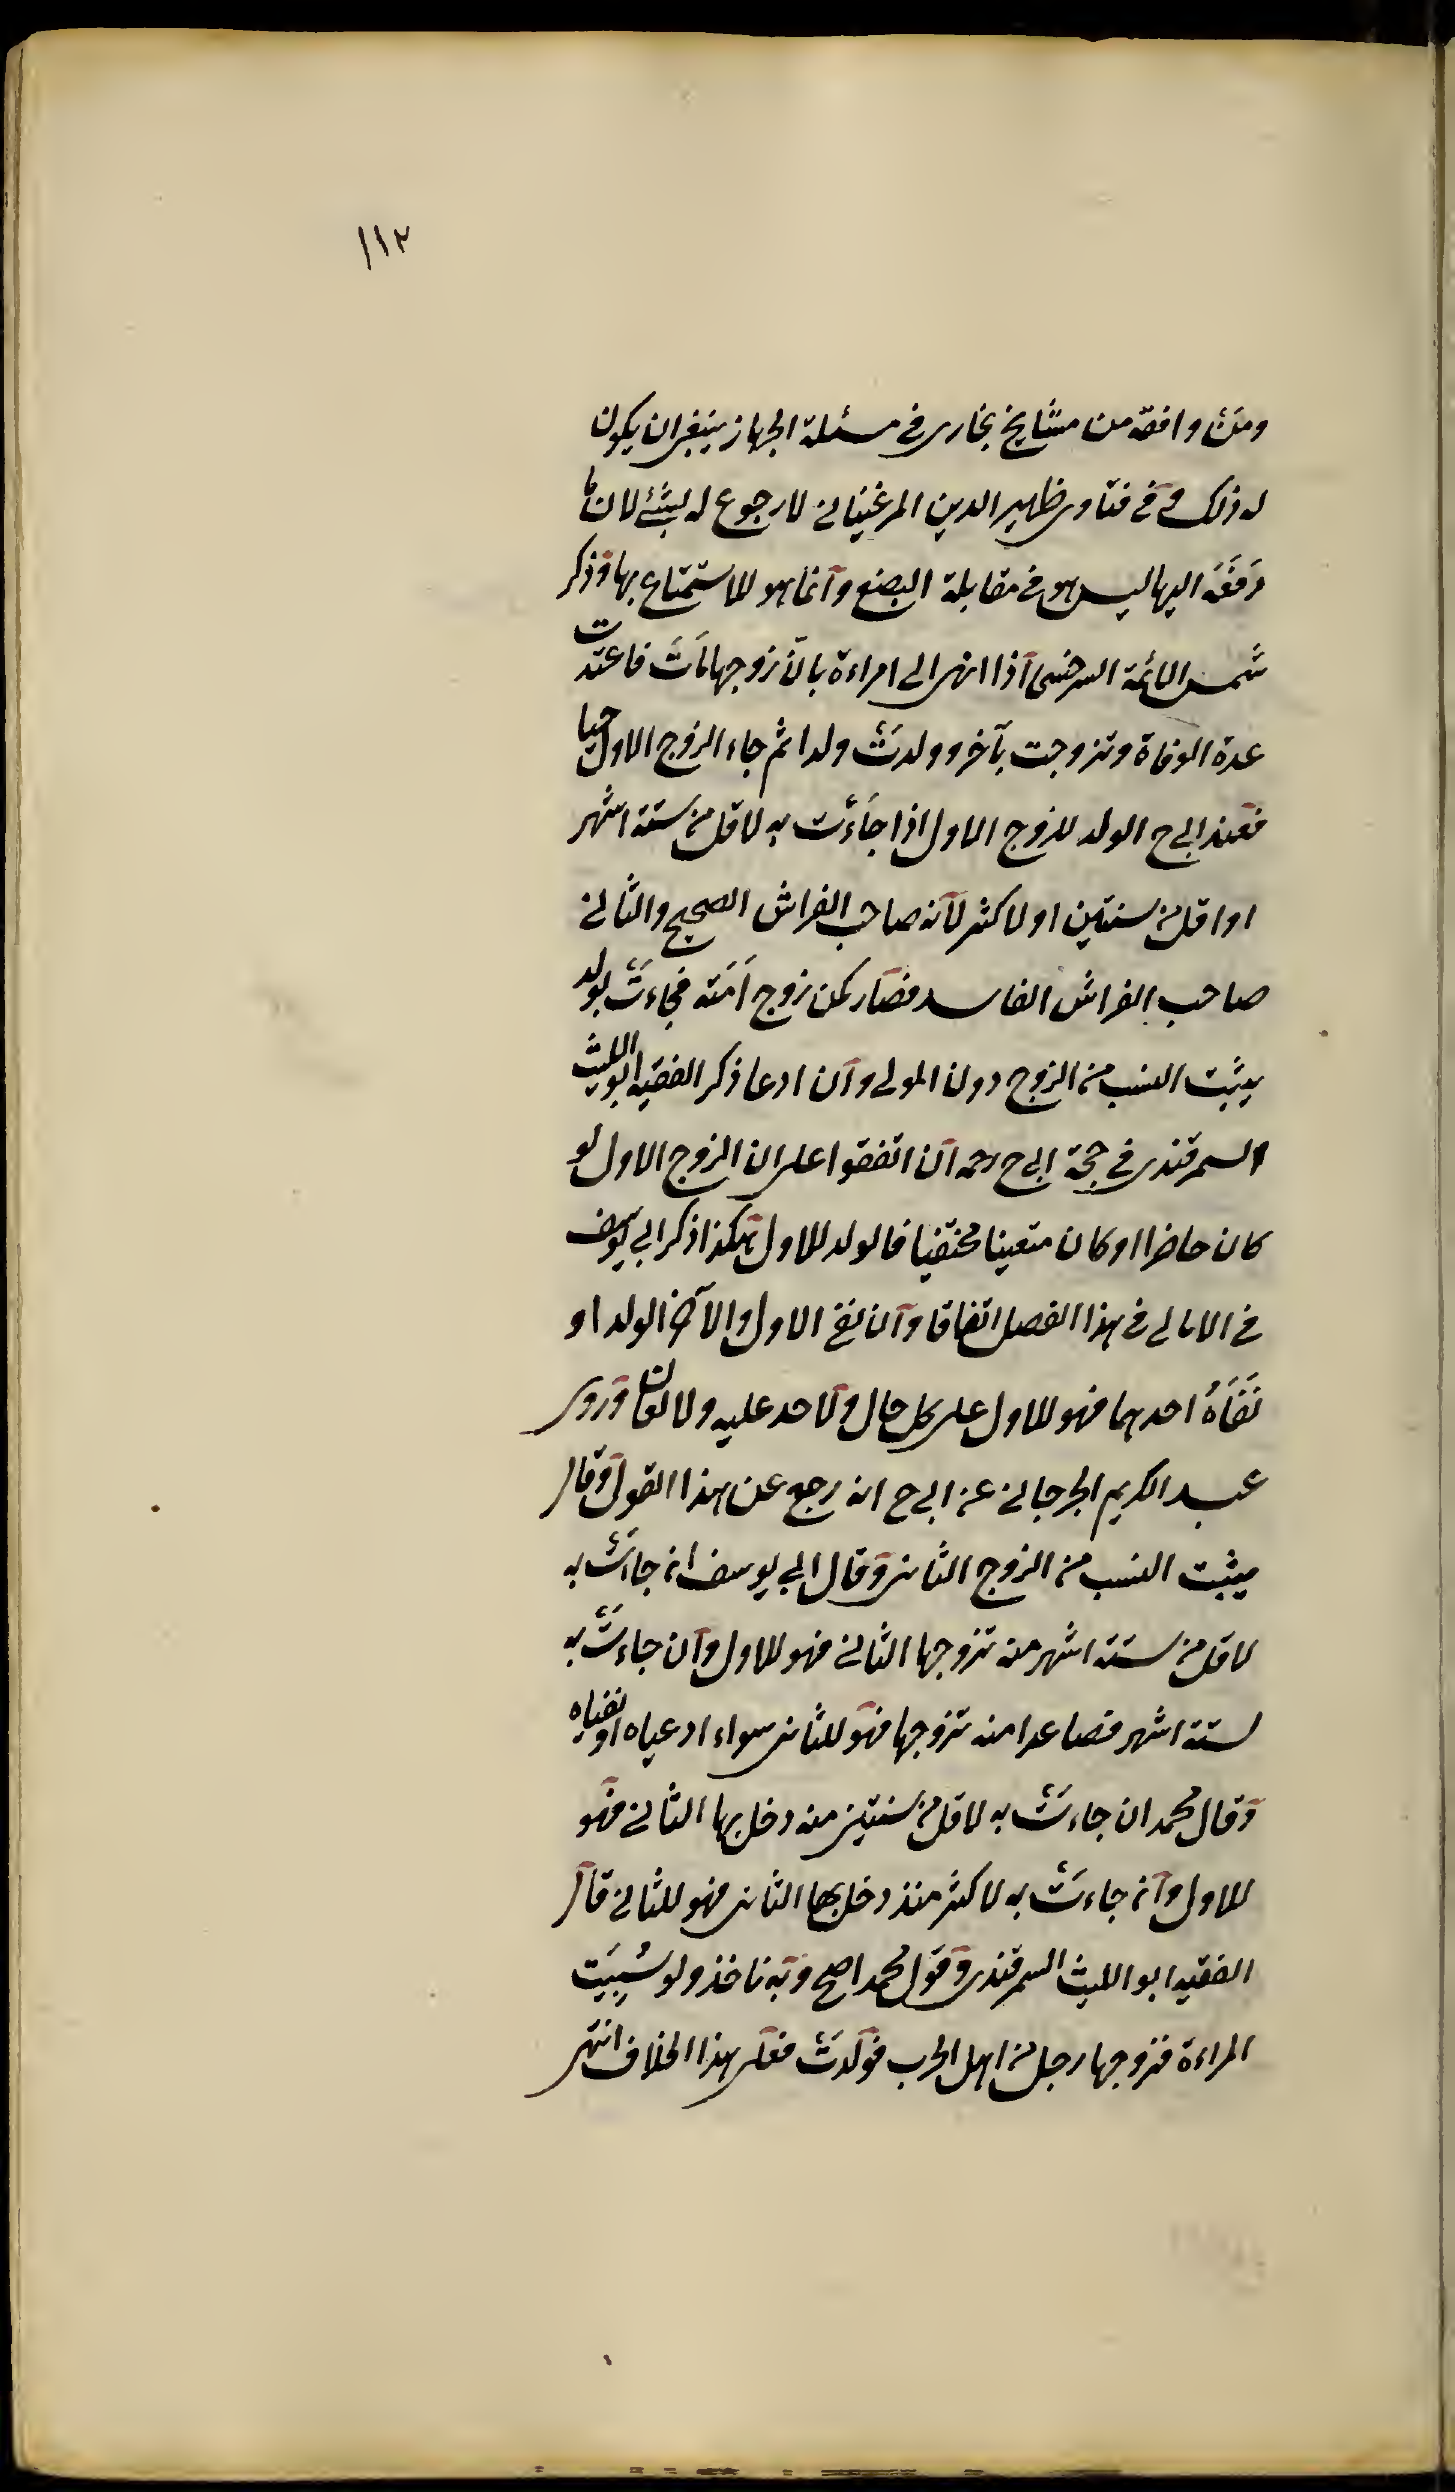 ١١٢
ومن وافقه من مشايخ بخارى في مسئلة الجهاز ينبغي ان يكون
له ذلك و في فتاوى ظهير الدين المرغيناني لا رجوع له بشئ لان ما
دفعه اليها ليس هو في مقابلة البضع وانما هو للاستمتاع بها وذكر
شمس الائمة السرخسي اذا انهى الى امراءة بان زوجها مات فاعتدت
عدة الوفاة وتزوجت بآخر وولدت ولدا ثم جاء الزوج الاول حيا
فعند ابي ح الولد للزوج الاول اذا جاءت به لاقل من ستة اشهر
او اقل من سنتين او لاكثر لانه صاحب الفراش الصحيح والثاني
صاحب الفراش الفاسد فصار كمن زوج امته فجاءت بولد
يثبت النسب من الزوج دون المولى وان ادعا ذكر الفقيه ابو الليث
السمرقندى في حجة ابي ح رحمه ان اتفقوا على ان الزوج الاول لو
كان حاضرا او كان متعينا مختفيا فالولد للاول هكذا ذكر ابي يوسف
في الامالي في هذا الفصل اتفاقا وان نفى الاول والآخر الولد او
نفاه احدهما فهو للاول على كل حال ولا حد عليه ولا لعان وروى
عبد الكريم الجرجاني عن ابي ح انه رجع عن هذا القول وقال
يثبت النسب من الزوج الثاني وقال ابي يوسف ان جاءت به
لاقل من ستة اشهر منه تزوجها الثاني فهو للاول وان جاءت به
لستة اشهر فصاعدا منه تزوجها فهو للثاني سواء ادعياه او نفياه
وقال محمد ان جاءت به لاقل من سنتين منه دخل بها الثاني فهو
للاول وان جاءت به لاكثر منذ دخل بها الثاني فهو للثاني قال
الفقيه ابو الليث السمرقندى وقول محمد اصح وبه ناخذ ولو سُبِيَت
المراءة فتزوجها رجل من اهل الحرب فولدت فعلى هذا الخلاف انتهى